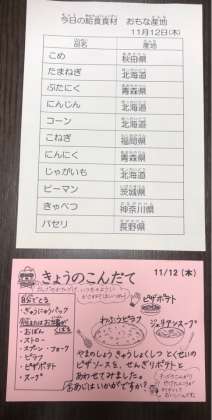 今日の給食食材　おもな産地
11月12日(木)
品名　産地
こめ　秋田県
たまねぎ　北海道
ぶたにく　青森県
にんじん　北海道
コーン　北海道
こねぎ　福岡県
にんにく　青森県
じゃがいも　北海道
ピーマン　茨城県
きゃべつ　神奈川県
パセリ　長野県
きょうのこんだて　11/12 (木)
・ぎゅうにゅうパック
・おぼん
・ストロー
・スプーン・フォーク
・ピラフ
・ピザポテト
・スープ
ピザポテト
ジュリアンスープ
ピザソースを、せんぎりポテトと
あわせてみました。
おあじはいかがですか?